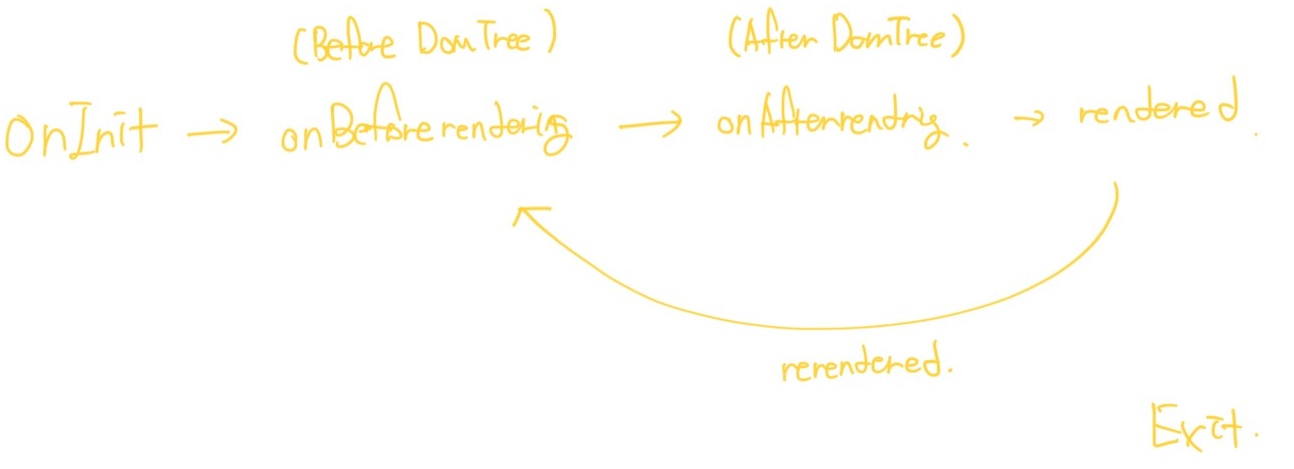 (Before DomTree) (After DomTree)
OnInit → onBeforerendering → onAfterrendrig. → rendered.
rerendered.
Exit.